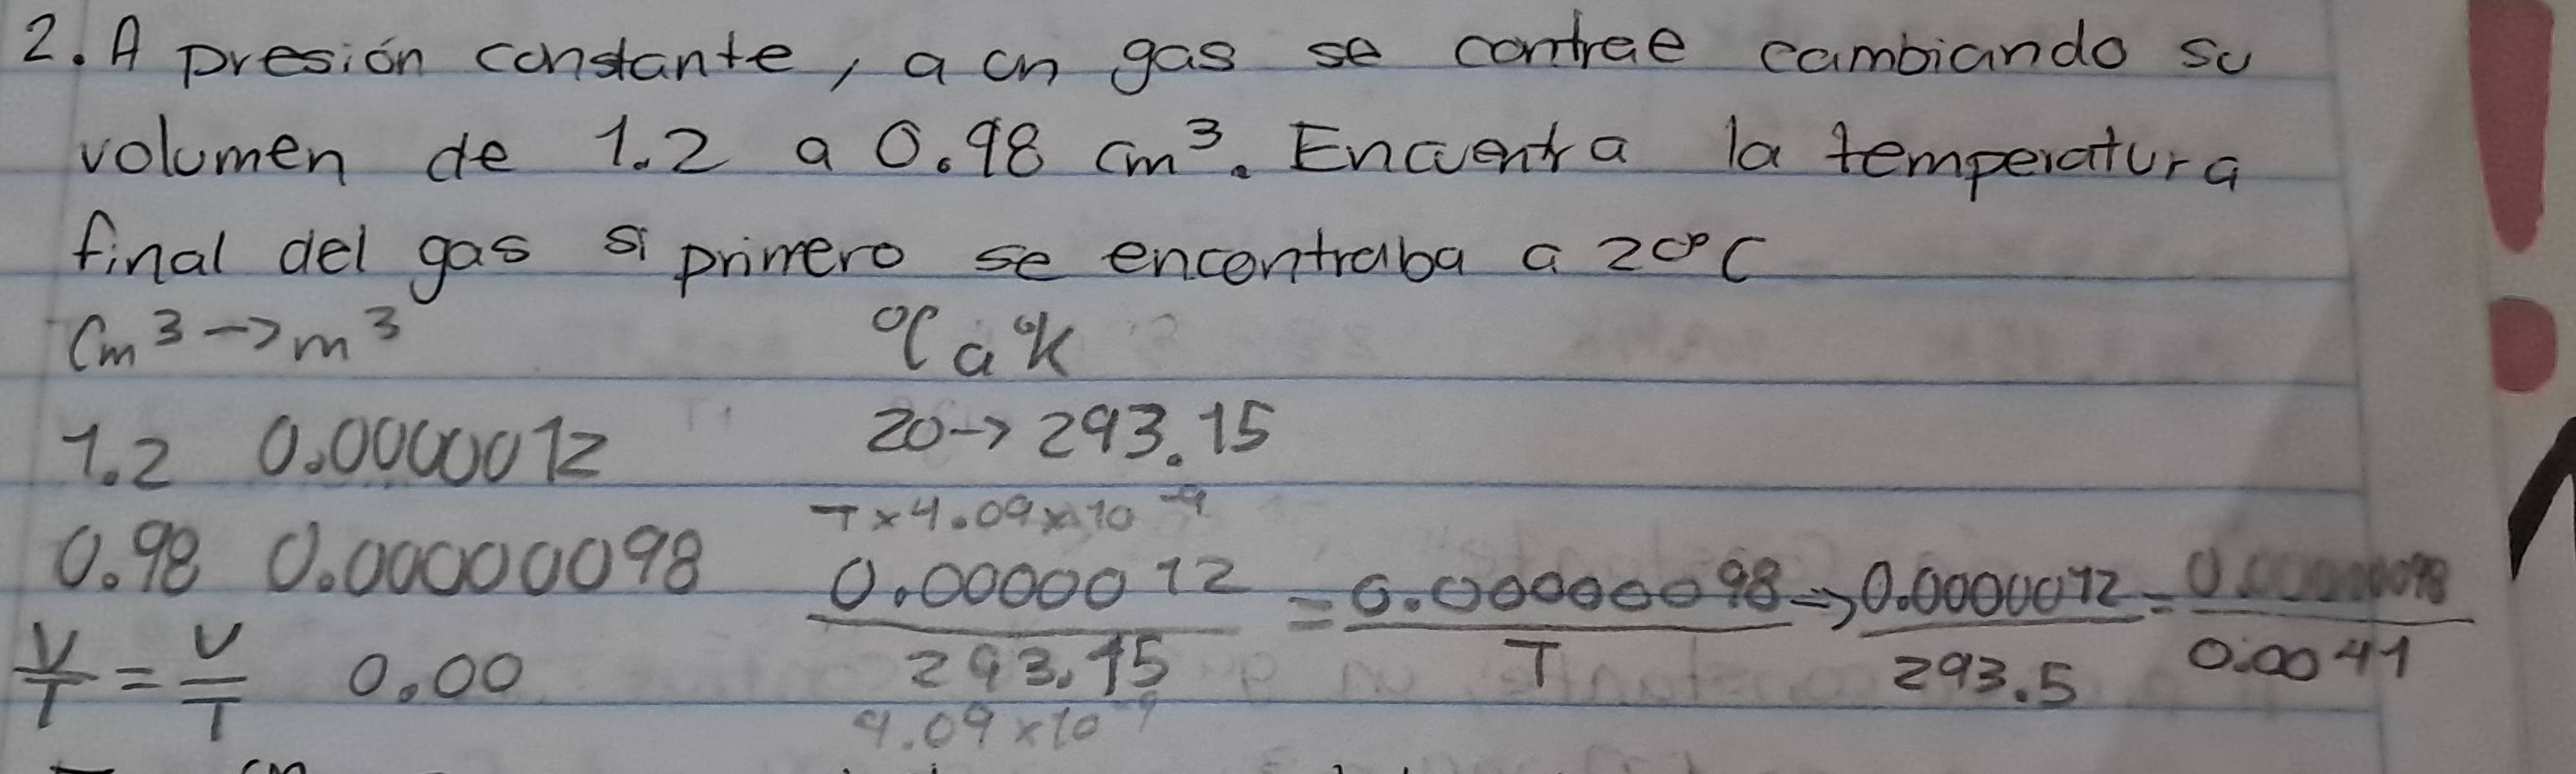 2. A presión constante, a un gas se contrae cambiando su
volumen de 1.2 a 0.98 cm³. Encuentra la temperatura
final del gas si primero se encontraba a 20°C
Cm³ → m³ °C a °K
1.2 0.0000012 20 → 293.15
T x 4.09 x 10⁻⁹
0.98 0.00000098 0.0000012 = 0.00000098 → 0.0000012 = 0.00000098
V/T = V/T 0.00 293.15 T 293.5 0.0041
4.09 x 10⁻⁹